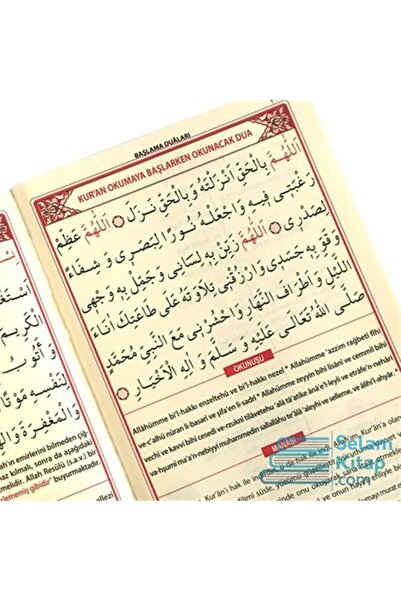 BAŞLAMA DUÂLARI
KUR'AN OKUMAYA BAŞLARKEN OKUNACAK DUA
اَللّٰهُمَّ بِالْحَقِّ اَنْزَلْتَهُ وَبِالْحَقِّ نَزَلَ ۞ اَللّٰهُمَّ عَظِّمْ
رَغْبَتِى فِيهِ وَاجْعَلْهُ نُورًا لِبَصَرِى وَ شِفَاءً
لِصَدْرِى ۞ اَللّٰهُمَّ زَيِّنْ بِهِ لِسَانِى وَجَمِّلْ بِهِ وَجْهِى
وَ قَوِّ بِهِ جَسَدِى وَارْزُقْنِى تِلَاوَتَهُ عَلٰى طَاعَتِكَ اٰنَاءَ
اللَّيْلِ وَ اَطْرَافَ النَّهَارِ وَاحْشُرْنِى مَعَ النَّبِىِّ مُحَمَّدٍ
صَلَّى اللّٰهُ تَعَالٰى عَلَيْهِ وَ سَلَّمَ وَ اٰلِهِ الْاَخْيَارِ ۞
OKUNUŞU
Allâhümme bi'l-hakkı enzeltehû ve bi'l-hakkı nezel * Allahümme 'azzim rağbetî fîhi
ve-c'alhü nûran li-basarî ve şifâ'en li-sadrî * Allahümme zeyyin bihî lisânî ve cemmil bihî
vechî ve kavvi bihî cesedî ve-rzuknî tilâvetehu 'alâ tâ'atike ânâ'e'l-leyli ve etrâfe'n-nehâri
va-hşurnî ma'a'n-nebiyyi muhammedin sallallâhü te'âlâ 'aleyhi ve selleme ve âlihi'l-ahyâr.
MANASI
Selam
Kitap
.com
الْكَرِيمَ
وَ اَتُوبُ
لِنَفْسِهِ
وَالْمَغْفِرَةَ
ah'ın emirlerini bilmeden çiğ
naz kılmalı, sonra da aşağıdaki
melidir. Allah Resûlü (s.a.v.) bir
işlememiş gibidir" buyurmaktadır.